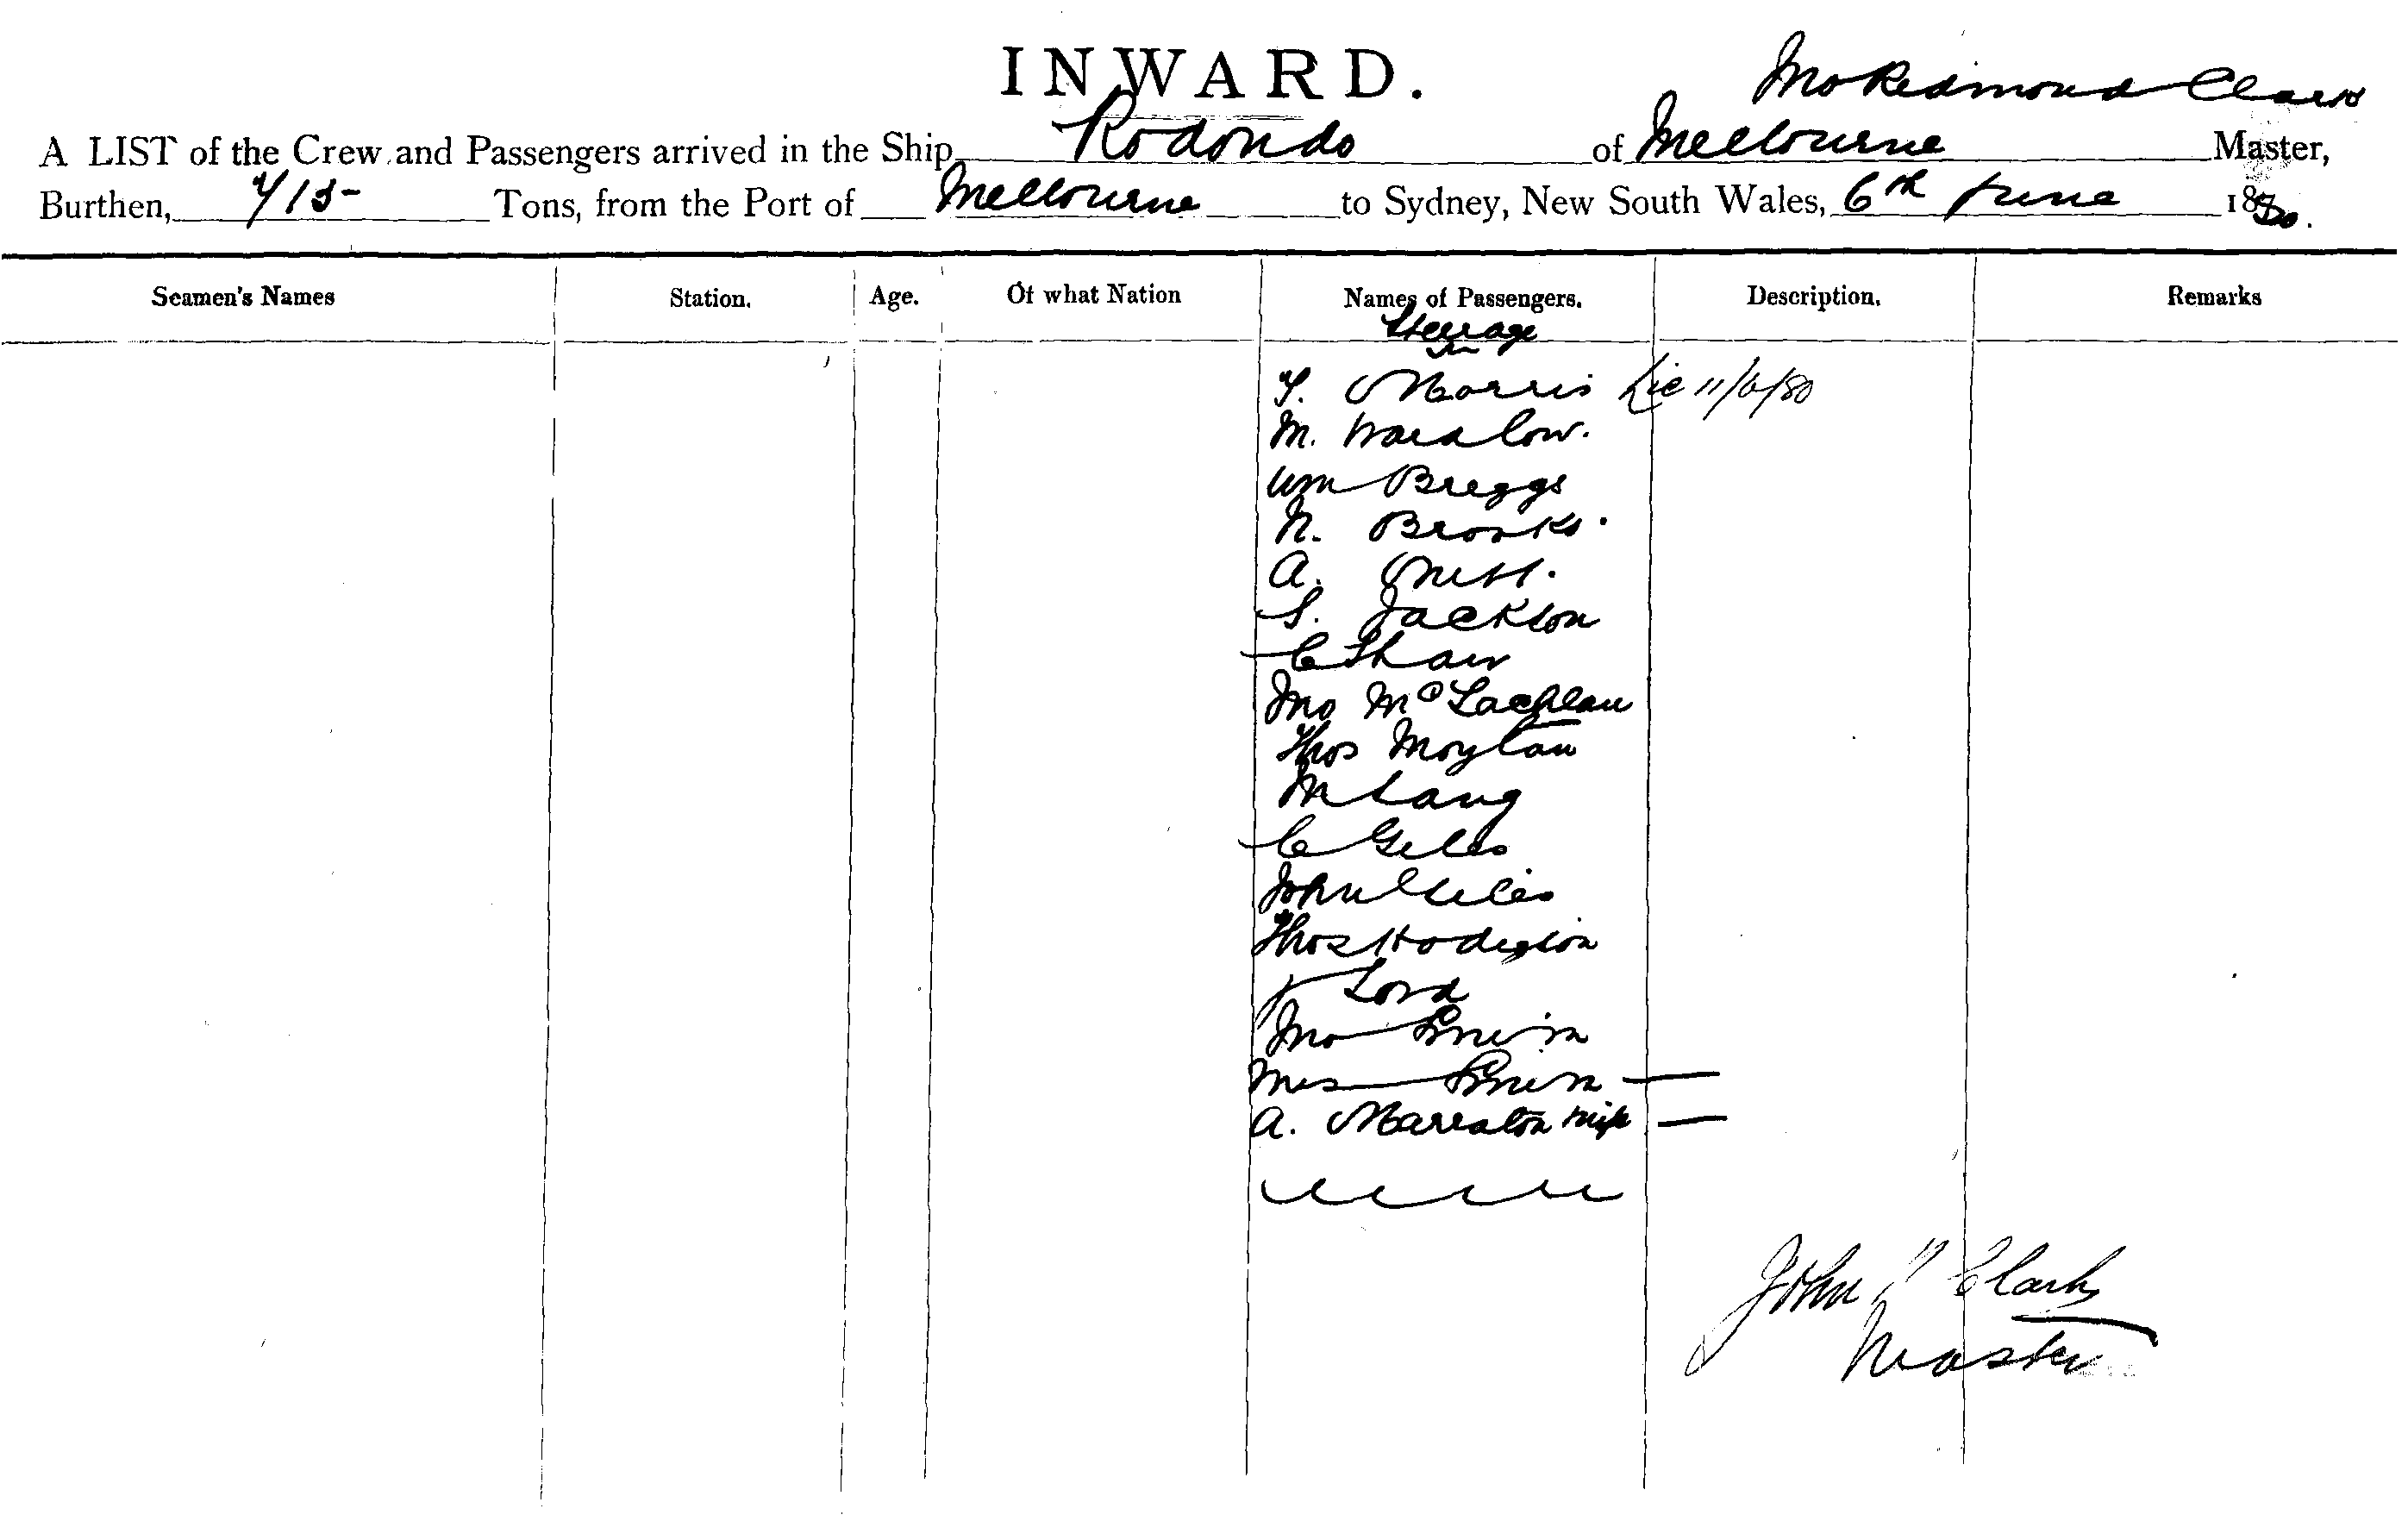 INWARD.
Jno Redmond Clark
A LIST of the Crew and Passengers arrived in the Ship Rodondo of Melbourne Master,
Burthen, 715 Tons, from the Port of Melbourne to Sydney, New South Wales, 6th June 1880.
Seamen's Names Station. Age. Of what Nation Names of Passengers. Description. Remarks
Steerage
T. Morris 11/6/80
M.
Wm Briggs
N. Brooks.
A.
S. Jackson
C Shaw
Jno McLachlan
Thos Moylan
M Lang
C Giles
John Giles
Thos Hodgson
J Lord
Jno
Mrs
A.
John R Clark
Master